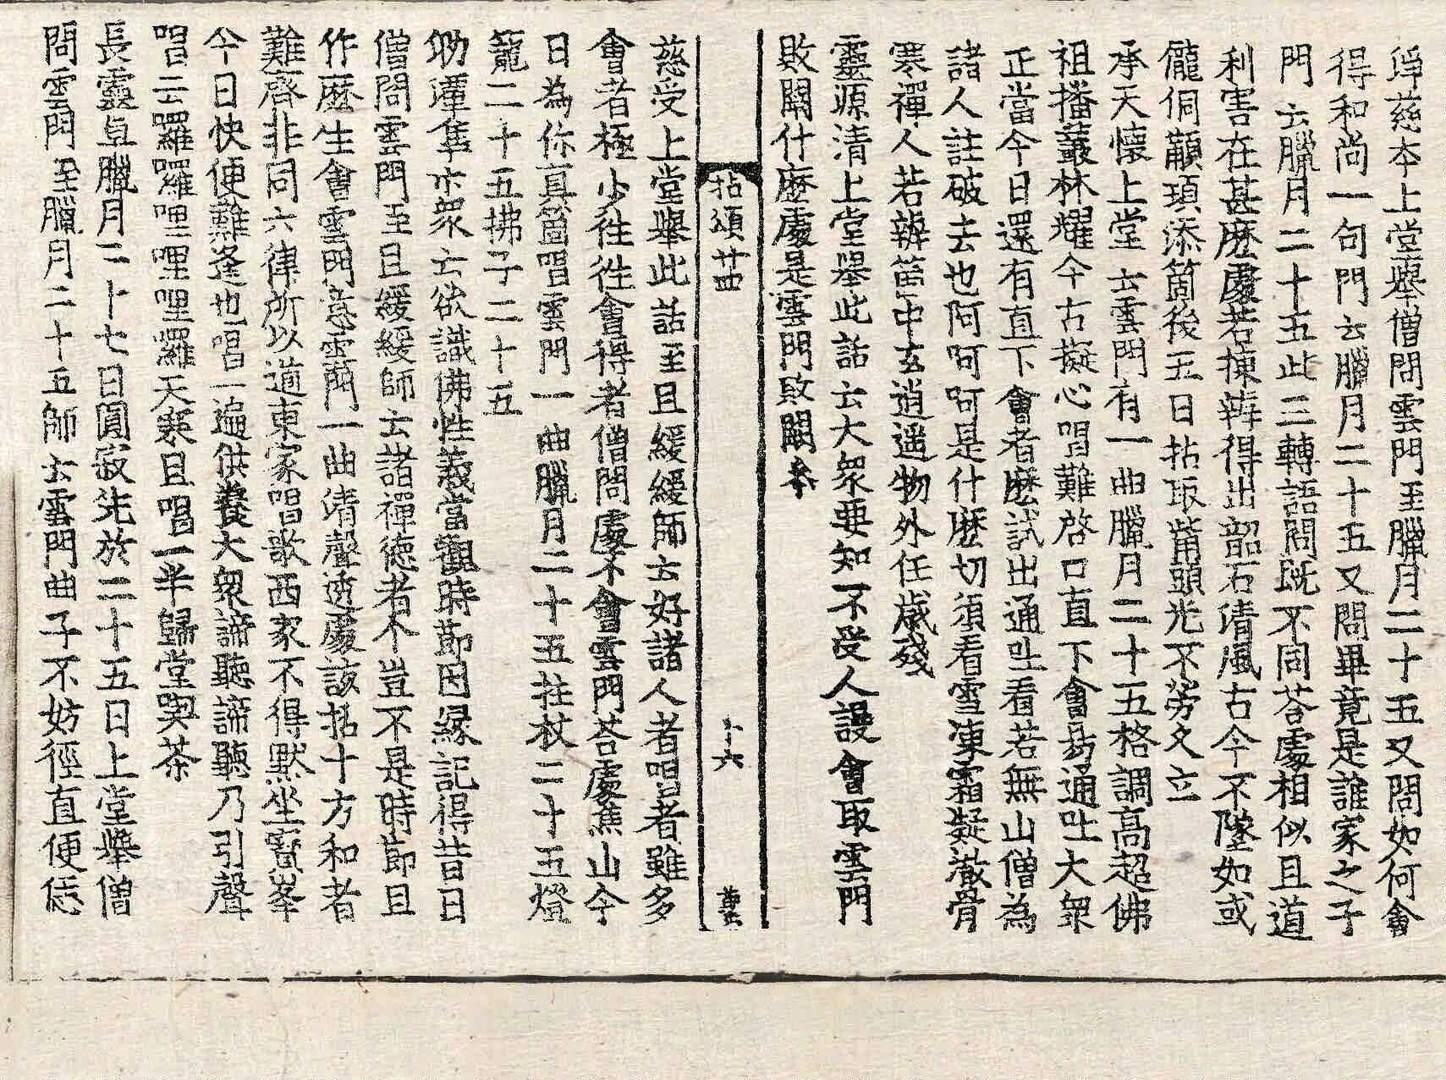 淨慈本上堂擧僧問雲門至臘月二十五又問如何會
得和尚一句門云臘月二十五又問畢竟是誰家之子
門云臘月二十五此三轉語問旣不同荅處相似且道
利害在甚麽處若揀辨得出韶石淸風古今不墜如或
儱侗顢頇添箇後五日拈取觜頭光不勞久立
承天懷上堂云雲門有一曲臘月二十五格調高超佛
祖播叢林耀今古擬心唱難啓口直下會易通吐大衆
正當今日還有直下會者麽試出通吐看若無山僧為
諸人註破去也阿呵呵是什麽切須看雪凍霜凝徹骨
寒禪人若辨笛中玄逍遥物外任歲殘
靈源淸上堂擧此話云大衆要知不受人謾會取雲門
敗闕什麽處是雲門敗闕叅
拈頌廿四
卜六
慈受上堂擧此話至且緩緩師云好諸人者唱者雖多
會者極少徃徃會得者僧問處不會雲門荅處蕉山今
日為你真箇唱雲門一曲臘月二十五拄杖二十五燈
籠二十五拂子二十五
勋潭隼示衆云欲識佛性義當觀時節因緣記得昔日
僧問雲門至且緩緩師云諸禪德者个豈不是時節且
作麽生會雲門意雲門一曲淸聲透處該括十方和者
難齊非同六律所以道東家唱歌西家不得黙坐寳峯
今日快便難逢也唱一遍供養大衆諦聽諦聽乃引聲
唱云囉囉哩哩哩囉天寒且唱一半歸堂喫茶
長靈卓臘月二十七日圓寂先於二十五日上堂擧僧
問雲門至臘月二十五師云雲門曲子不妨徑直便恁